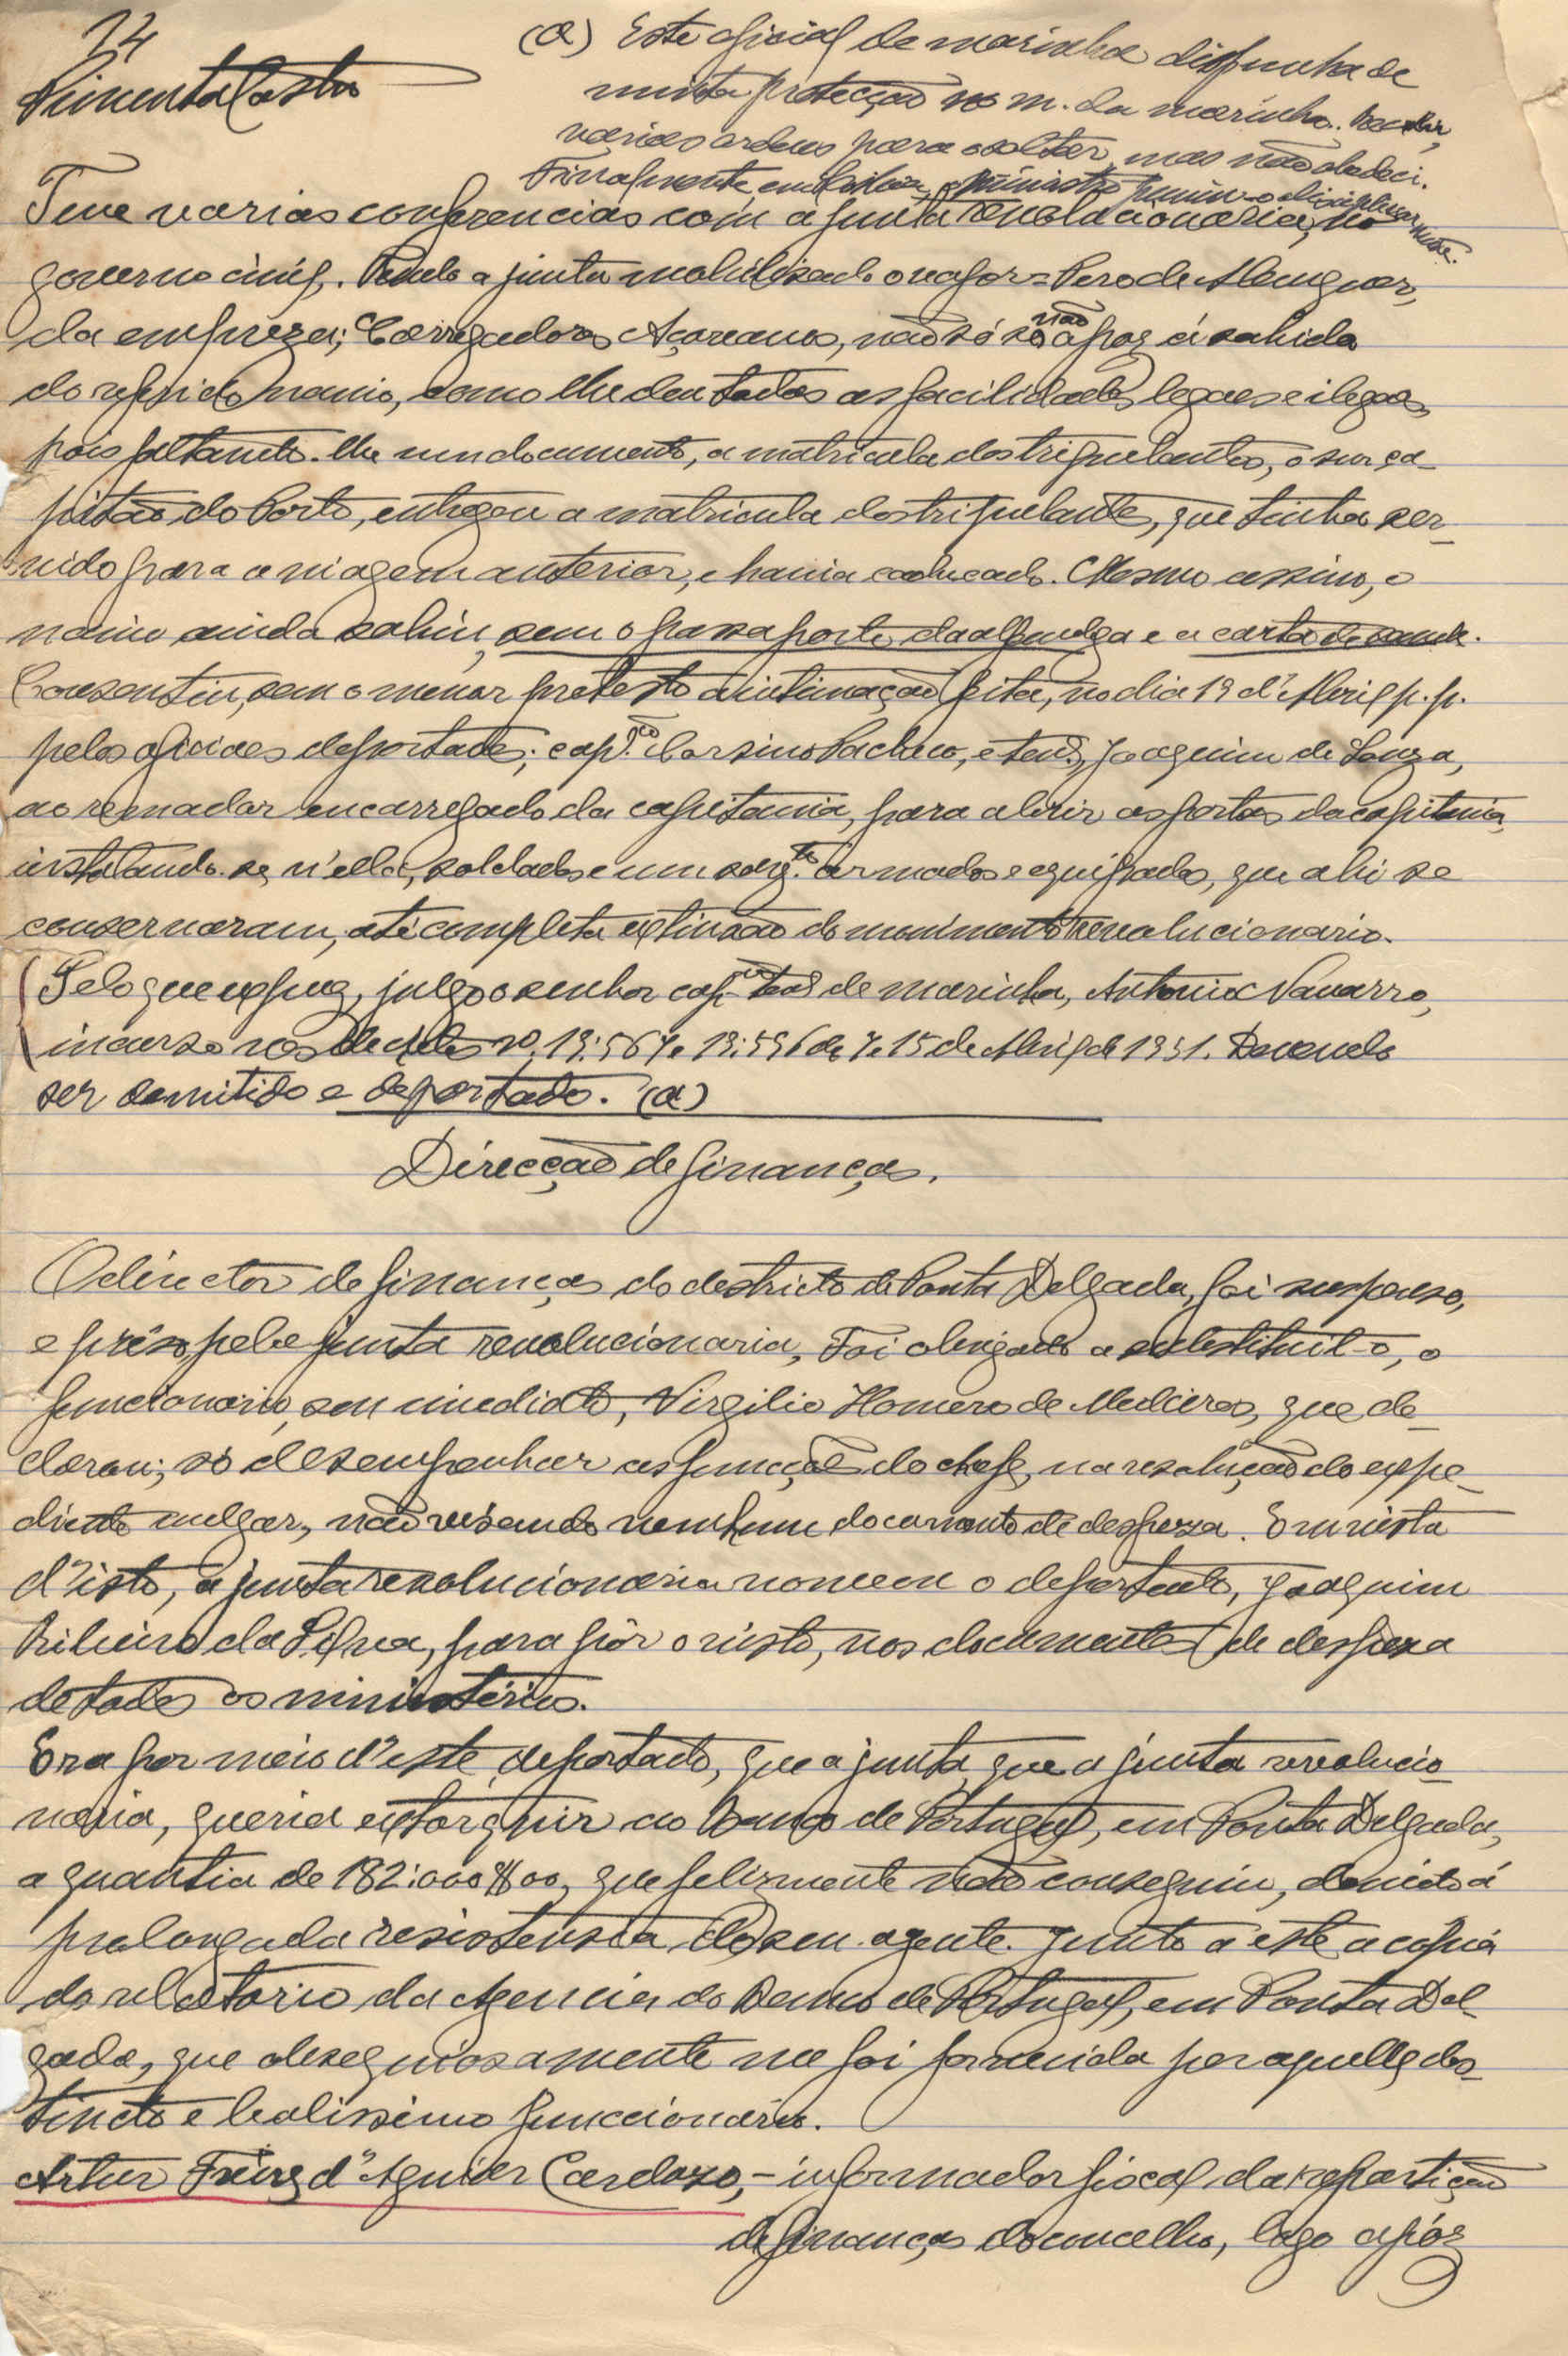 24
Pimenta Castro
(a) Este oficial de marinha dispunha de
muita protecção no m. da marinha. Recebi,
varias ordens para o soltar, mas não obedeci.
Finalmente em Lisboa, o ministro puniu-o disciplinarmente.
Teve varias conferencias com a junta revolucionaria, no
governo civil. Tendo a junta mobilisado o vapor = Pero de Alemquer,
da empreza; Carregadores Açoreanos, não só se não opoz á sahida
do referido navio, como lhe deu todas as facilidades legaes e ilegaes,
pois faltando-lhe um documento, a matricula dos tripulantes, o snr ca-
pitão do Porto, entregou a matricula dos tripulantes, que tinha ser-
vido para a viagem anterior, e havia caducado. Mesmo assim, o
navio ainda sahiu, sem o passaporte da alfandega e a carta de saude.
Consentiu, sem o menor protesto á intimação feita, no dia 19 d'Abril p. p.
pelos oficiaes deportados; cap.tão Carsino Pacheco, e ten.te Joaquim de Souza,
ao remador encarregado da capitania, para abrir as portas da capitania,
instalando-se n'ella, soldados e um sarg.to armados e equipados, que ahi se
conservaram, até completa extinsão do movimento revolucionario.
Pelo que expuz, julgo o senhor cap-ten. de marinha, Antonio Navarro,
incurso nos Decretos nº 19:567 e 19:596 de 7 e 15 de Abril de 1931. Devendo
ser demitido e deportado. (a)
Direcção de finanças.
O director de finanças do destricto de Ponta Delgada, foi suspenso,
e prêso pela junta revolucionaria, Foi obrigado a substituil-o, o
funcionario, seu imediato, Virgilio Homero de Medeiros, que de-
clarou; só desempenhar as funções do chefe, na resolução do expe-
diente vulgar, não visando nenhum documento de despeza. Em vista
d'isto, a junta revolucionaria nomeou o deportado, Joaquim
Ribeiro da Silva, para pôr o visto, nos documentos de despeza
de todos os ministérios.
Era por meio d'este deportado, que a junta que a junta revolucio-
naria, queria extorquir ao Banco de Portugal, em Ponta Delgada,
a quantia de 182:000$00, que felizmente não conseguiu, devido á
prolongada resistensia do seu agente. Junto a este a copia
do relatorio da Agencia do Banco de Portugal, em Ponta Del-
gada, que obsequiosamente me foi fornecida por aquelle des-
tincto e lealissimo funccionario.
Artur Freire d'Aguiar Cardozo, - informador fiscal da repartição
de finanças do concelho, logo após